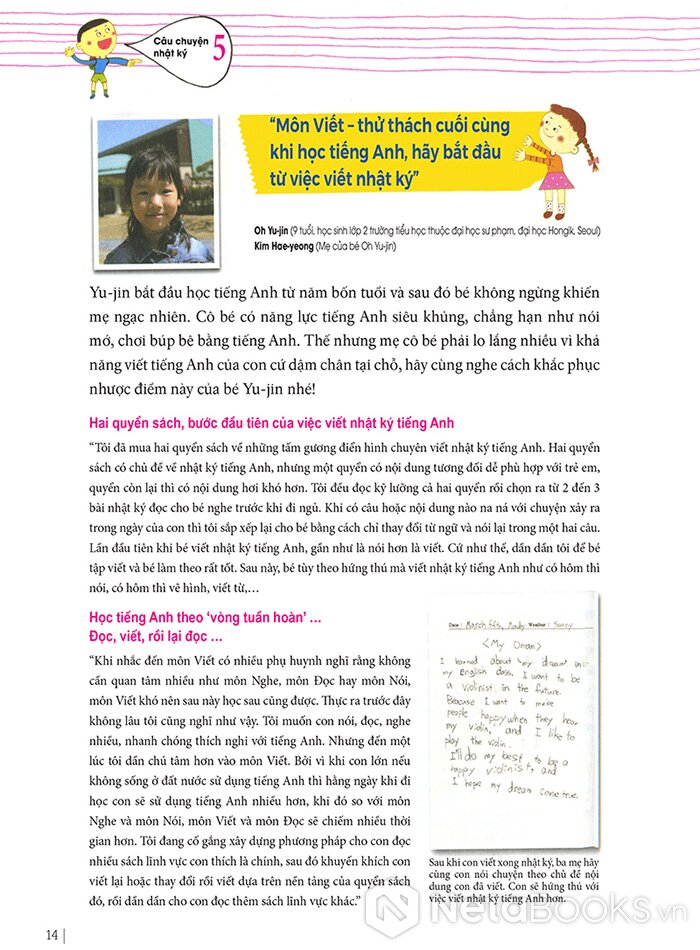 Câu chuyện
nhật ký
5
“Môn Viết - thử thách cuối cùng
khi học tiếng Anh, hãy bắt đầu
từ việc viết nhật ký”
Oh Yu-jin (9 tuổi, học sinh lớp 2 trường tiểu học thuộc đại học sư phạm, đại học Hongik, Seoul)
Kim Hae-yeong (Mẹ của bé Oh Yu-jin)
Yu-jin bắt đầu học tiếng Anh từ năm bốn tuổi và sau đó bé không ngừng khiến
mẹ ngạc nhiên. Cô bé có năng lực tiếng Anh siêu khủng, chẳng hạn như nói
mớ, chơi búp bê bằng tiếng Anh. Thế nhưng mẹ cô bé phải lo lắng nhiều vì khả
năng viết tiếng Anh của con cứ dậm chân tại chỗ, hãy cùng nghe cách khắc phục
nhược điểm này của bé Yu-jin nhé!
Hai quyển sách, bước đầu tiên của việc viết nhật ký tiếng Anh
“Tôi đã mua hai quyển sách về những tấm gương điển hình chuyên viết nhật ký tiếng Anh. Hai quyển
sách có chủ đề về nhật ký tiếng Anh, nhưng một quyển có nội dung tương đối dễ phù hợp với trẻ em,
quyển còn lại thì có nội dung hơi khó hơn. Tôi đều đọc kỹ lưỡng cả hai quyển rồi chọn ra từ 2 đến 3
bài nhật ký đọc cho bé nghe trước khi đi ngủ. Khi có câu hoặc nội dung nào na ná với chuyện xảy ra
trong ngày của con thì tôi sắp xếp lại cho bé bằng cách chỉ thay đổi từ ngữ và nói lại trong một hai câu.
Lần đầu tiên khi bé viết nhật ký tiếng Anh, gần như là nói hơn là viết. Cứ như thế, dần dần tôi để bé
tập viết và bé làm theo rất tốt. Sau này, bé tùy theo hứng thú mà viết nhật ký tiếng Anh như có hôm thì
nói, có hôm thì vẽ hình, viết từ,...
Học tiếng Anh theo ‘vòng tuần hoàn’ ...
Đọc, viết, rồi lại đọc ...
“Khi nhắc đến môn Viết có nhiều phụ huynh nghĩ rằng không
cần quan tâm nhiều như môn Nghe, môn Đọc hay môn Nói,
môn Viết khó nên sau này học sau cũng được. Thực ra trước đây
không lâu tôi cũng nghĩ như vậy. Tôi muốn con nói, đọc, nghe
nhiều, nhanh chóng thích nghi với tiếng Anh. Nhưng đến một
lúc tôi dần chú tâm hơn vào môn Viết. Bởi vì khi con lớn nếu
không sống ở đất nước sử dụng tiếng Anh thì hằng ngày khi đi
học con sẽ sử dụng tiếng Anh nhiều hơn, khi đó so với môn
Nghe và môn Nói, môn Viết và môn Đọc sẽ chiếm nhiều thời
gian hơn. Tôi đang cố gắng xây dựng phương pháp cho con đọc
nhiều sách lĩnh vực con thích là chính, sau đó khuyến khích con
viết lại hoặc thay đổi rồi viết dựa trên nền tảng của quyển sách
đó, rồi dần dần cho con đọc thêm sách lĩnh vực khác.”
Date : March 5th, Monday Weather : Sunny
<My Dream>
I learned about "my dream" in
my english class. I want to be
a violinist in the future.
Because I want to make
people happy when they hear
my violin, and I like to
play the violin.
I'll do my best to be a
happy violinist, and
I hope my dream come true.
Sau khi con viết xong nhật ký, ba mẹ hãy
cùng con nói chuyện theo chủ đề nội
dung con đã viết. Con sẽ hứng thú với
việc viết nhật ký tiếng Anh hơn.
14
NetaBooks.vn